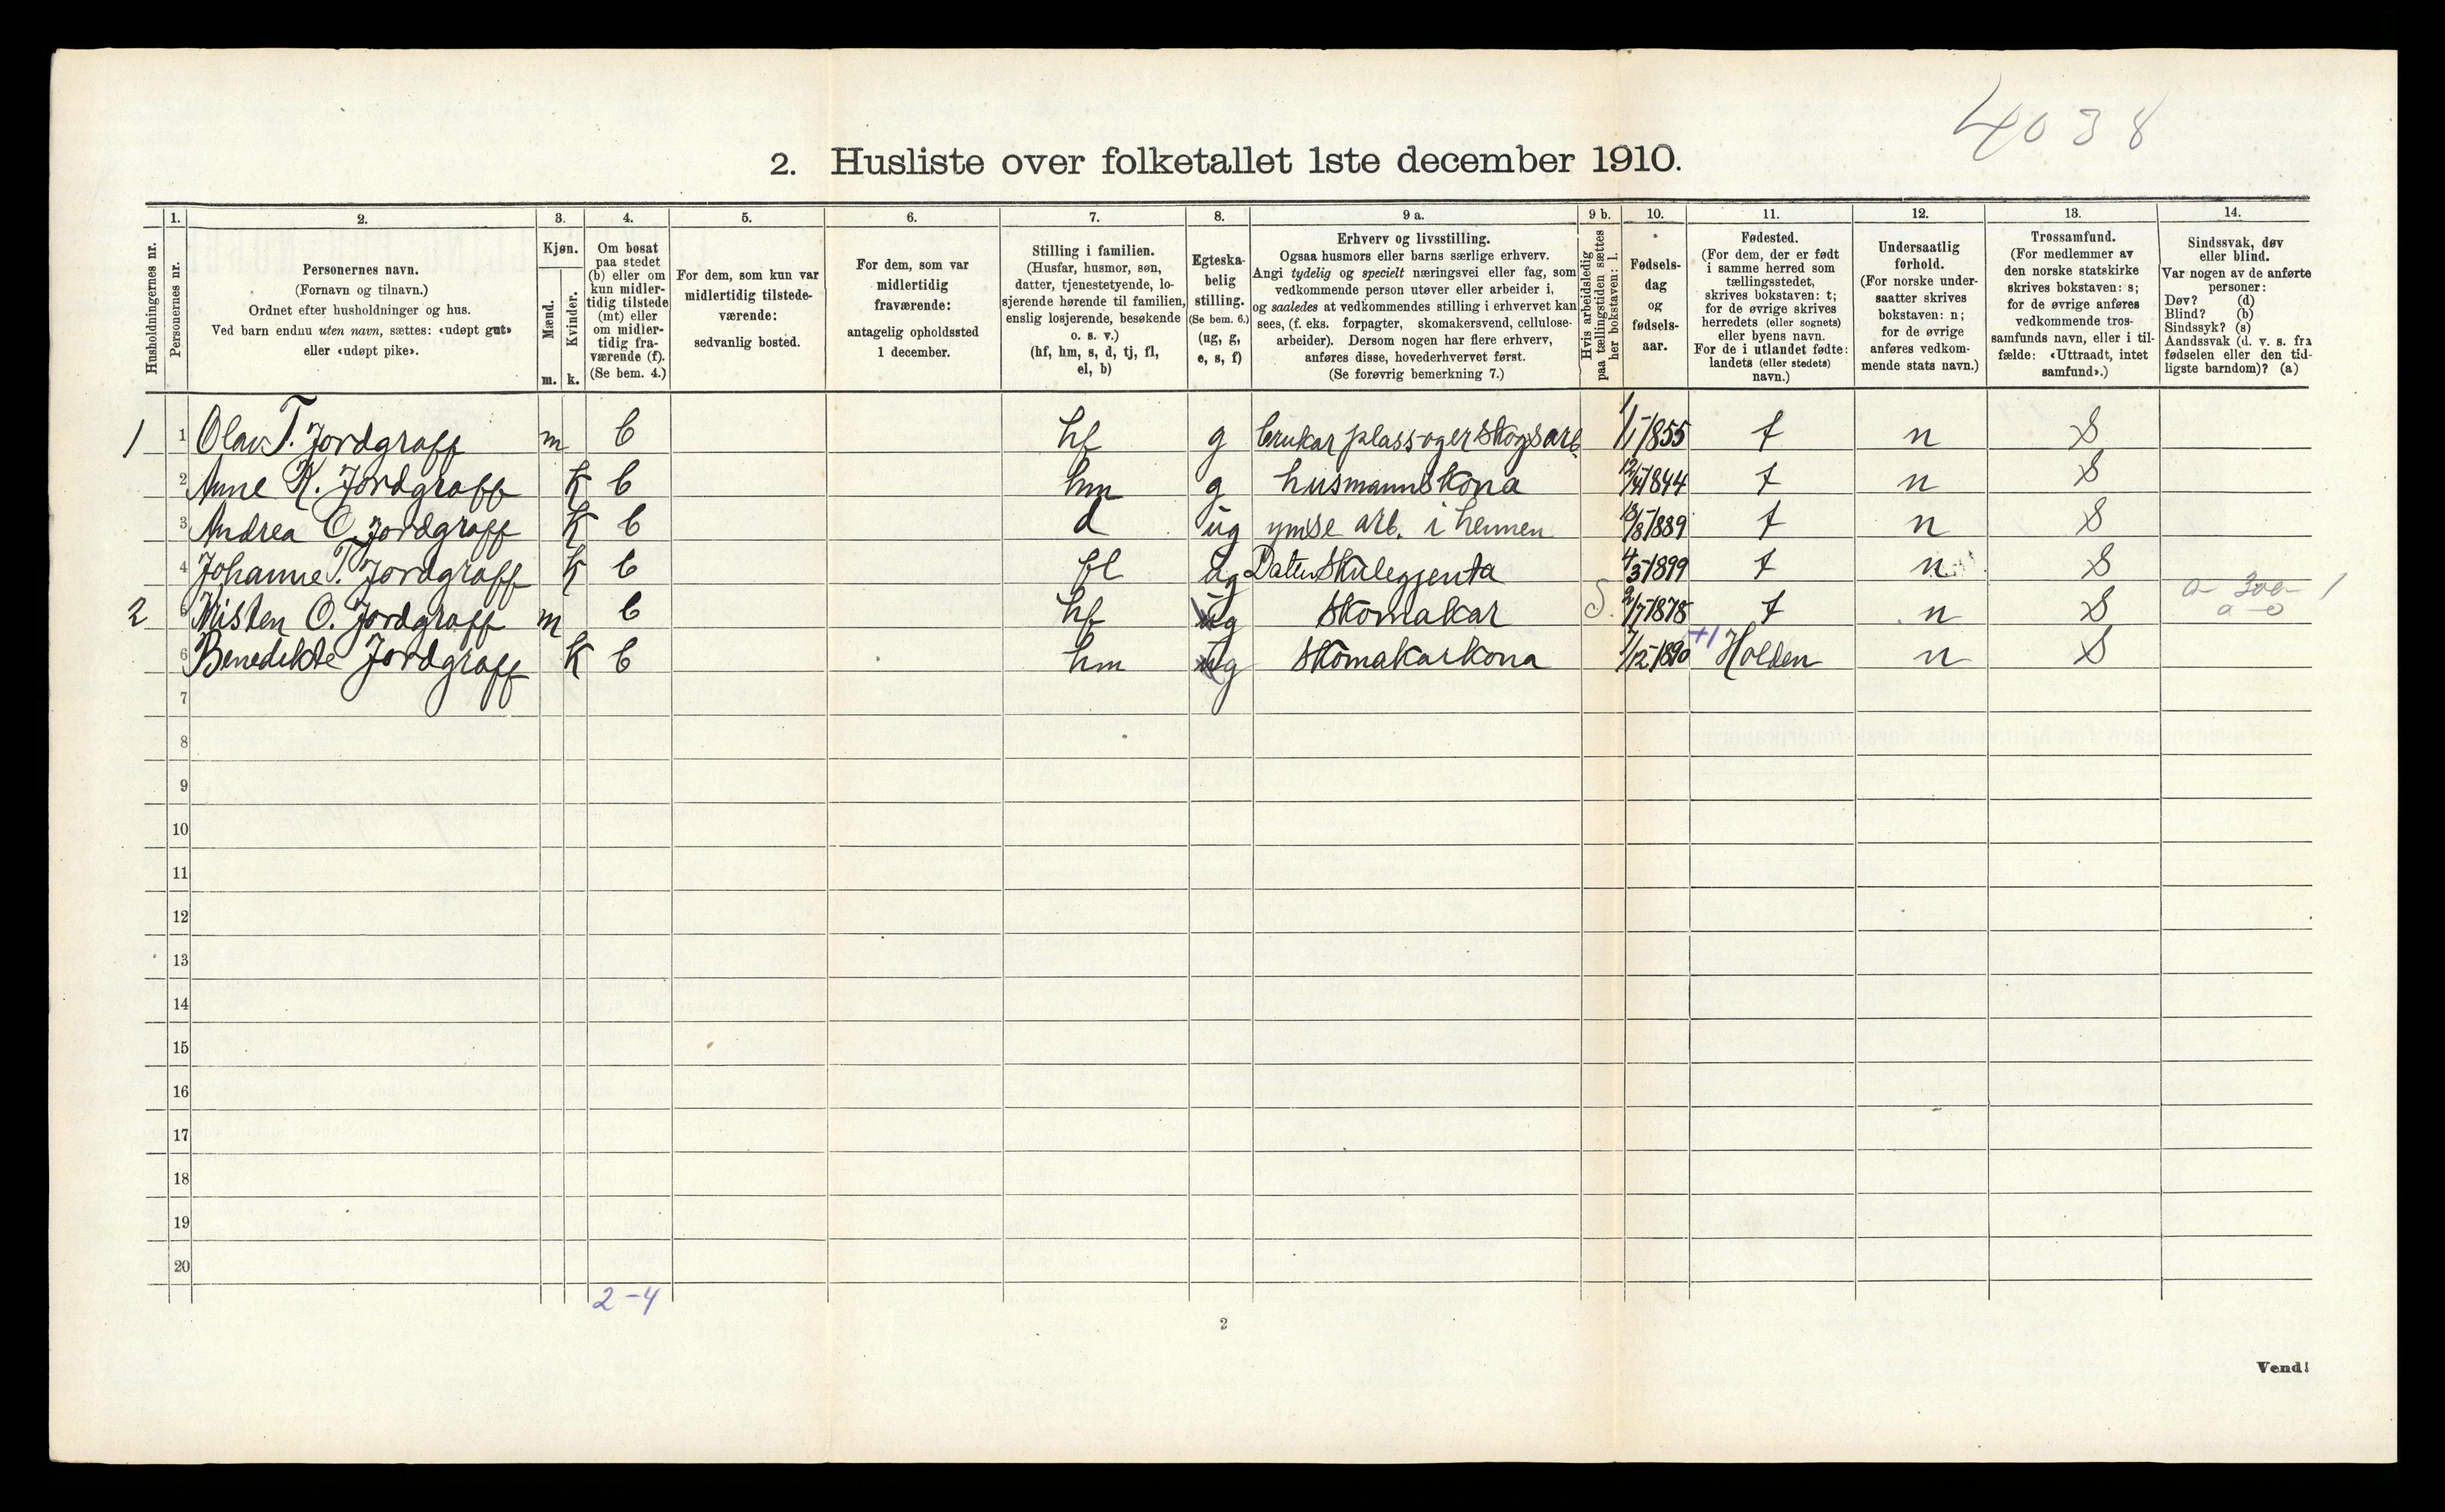 4038
2. Husliste over folketallet 1ste december 1910.
1. 2. 3. 4. 5. 6. 7. 8. 9 a. 9 b. 10. 11. 12. 13. 14.
Husholdningernes nr.
Personernes nr.
Personernes navn.
(Fornavn og tilnavn.)
Ordnet efter husholdninger og hus.
Ved barn endnu uten navn, sættes: «udøpt gut»
eller «udøpt pike».
Kjøn.
Mænd.
Kvinder.
m. k.
Om bosat
paa stedet
(b) eller om
kun midler-
tidig tilstede
(mt) eller
om midler-
tidig fra-
værende (f).
(Se bem. 4.)
For dem, som kun var
midlertidig tilstede-
værende:
sedvanlig bosted.
For dem, som var
midlertidig
fraværende:
antagelig opholdssted
1 december.
Stilling i familien.
(Husfar, husmor, søn,
datter, tjenestetyende, lo-
sjerende hørende til familien,
enslig losjerende, besøkende
o. s. v.)
(hf, hm, s, d, tj, fl,
el, b)
Egteska-
belig
stilling.
(Se bem. 6.)
(ug, g,
e, s, f)
Erhverv og livsstilling.
Ogsaa husmors eller barns særlige erhverv.
Angi tydelig og specielt næringsvei eller fag, som
vedkommende person utøver eller arbeider i,
og saaledes at vedkommendes stilling i erhvervet kan
sees, (f. eks. forpagter, skomakersvend, cellulose-
arbeider). Dersom nogen har flere erhverv,
anføres disse, hovederhvervet først.
(Se forøvrig bemerkning 7.)
Hvis arbeidsledig
paa tællingstiden sættes
her bokstaven: l.
Fødsels-
dag
og
fødsels-
aar.
Fødested.
(For dem, der er født
i samme herred som
tællingsstedet,
skrives bokstaven: t;
for de øvrige skrives
herredets (eller sognets)
eller byens navn.
For de i utlandet fødte:
landets (eller stedets)
navn.)
Undersaatlig
forhold.
(For norske under-
saatter skrives
bokstaven: n;
for de øvrige
anføres vedkom-
mende stats navn.)
Trossamfund.
(For medlemmer av
den norske statskirke
skrives bokstaven: s;
for de øvrige anføres
vedkommende tros-
samfunds navn, eller i til-
fælde: «Uttraadt, intet
samfund».)
Sindssvak, døv
eller blind.
Var nogen av de anførte
personer:
Døv? (d)
Blind? (b)
Sindssyk? (s)
Aandssvak (d. v. s. fra
fødselen eller den tid-
ligste barndom)? (a)
1 1 Olav T. Jordgraff m b hf g brukar plass og er skogsarb. 1/1-1855 t n S
2 Anne K. Jordgraff k b hm g husmannskona 12/4 1844 t n S
3 Andrea O. Jordgraff k b d ug ymse arb. i heimen 13/8-1889 t n S
4 Johanne T. Jordgraff k b fl ug Skulegjenta 4/3-1899 t n S
2 5 O. Jordgraff m b hf g Skomakar S 2/7-1878 t n S
6 Benedikte Jordgraff k b hm g Skomakarkona 7/12-1890 +1 Holden n S
7
8
9
10
11
12
13
14
15
16
17
18
19
20
2-4
2
Vend!